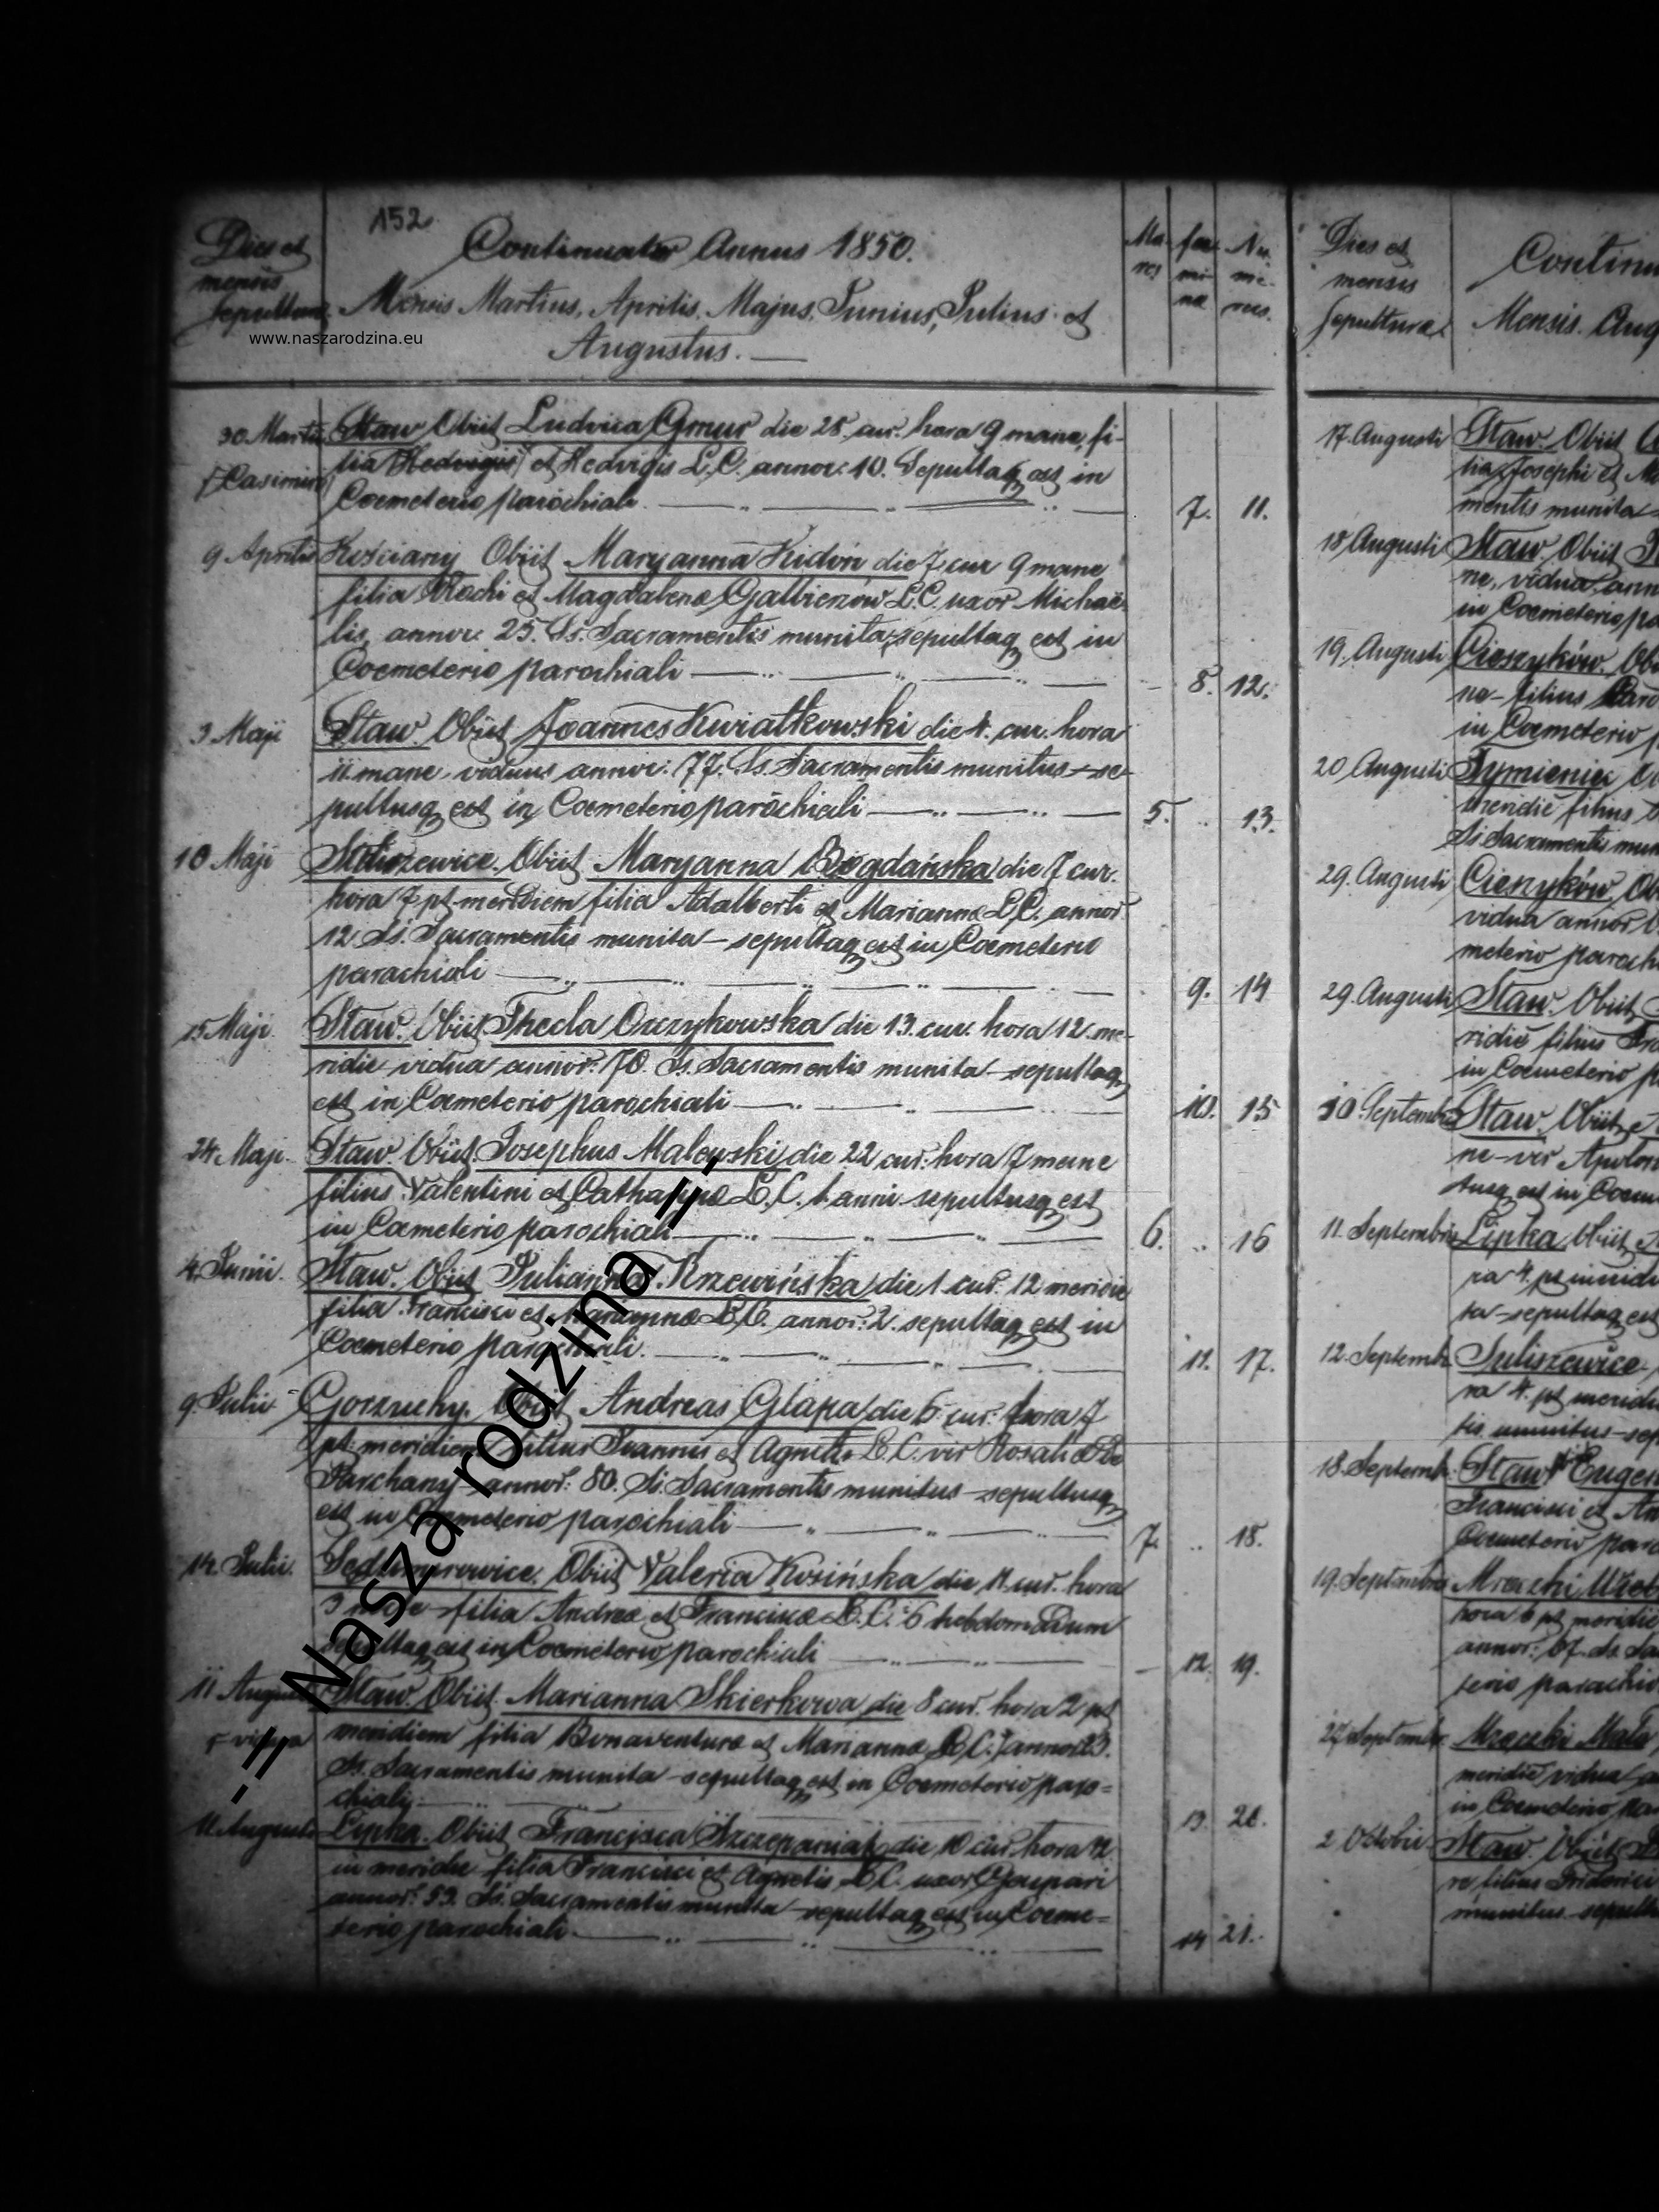 152.
Dies et
mensis
sepulturæ
Continuatur Annus 1850.
Mensis Martius, Aprilis, Majus, Junius, Julius et
Augustus.
Ma-
res
fœ-
mi-
næ
Nu-
me-
rus.
www.naszarodzina.eu
30 Martii Staw Obiit Ludvica Gmur die 28 cur. hora 9 mane, fi-
(Casimiri) lia (Hedvigis) et Hedvigis L.C. annor: 10. Sepultaq est in
Coemeterio parochiali. 7. 11.
9 Aprilis Kościany Obiit Maryanna Kidoń die 7 cur 9 mane
filia Rochi et Magdalenæ L.C. uxor Michaë-
lis, annor: 25. Ss. Sacramentis munita, sepultaq est in
Coemeterio parochiali 8. 12.
Maji Staw. Obiit Joannes Kwiatkowski die 4. cur. hora
11 mane, viduus annor: 77. Ss. Sacramentis munitus - se-
pultusq est in Coemeterio parochiali 5. 13.
10 Maji Obiit Maryanna Bogdańska die 7 cur.
hora 7 pt meridiem filia Adalberti et Mariannæ L.C. annor
12 Ss. Sacramentis munita - sepultaq est in Coemeterio
parochiali 9. 14
15 Maji Staw. Obiit Thecla Orczykowska die 13. cur. hora 12. me-
ridie vidua annor: 70. Ss. Sacramentis munita - sepultaq
est in Coemeterio parochiali 10. 15
24 Maji Staw Obiit Josephus Malewski die 22 cur: hora 7 mane
filius Valentini et Catharinæ L.C. 1 anni sepultusq est
in Coemeterio parochiali 6. 16
4. Junii. Staw. Obiit Julianna Krzewińska die 1 cur. 12 meridie
filia Francisci et Mariannæ L.C. annor: 2. sepultaq est in
Coemeterio parochiali. 11. 17.
9. Julii Gorzuchy. Obiit Andreas Glapa die 6 cur: hora 7
pt meridiem filius Joannis et Agnetis L.C. vir Rosaliæ
Parchany annor: 80. Ss. Sacramentis munitus - sepultusq
est in Coemeterio parochiali 7. 18.
14. Julii. Obiit Valeria Kosińska die 11 cur. hora
3 filia Andreæ et Franciscæ L.C. 6 hebdomadum
sepultaq est in Coemeterio parochiali 12. 19.
11 Augusti Staw. Obiit Marianna Skierkowa die 8 cur. hora 2 pt
vidua meridiem filia Bonaventuræ et Mariannæ L.C. annor 23.
Ss. Sacramentis munita - sepultaq est in Coemeterio paro-
chiali 13. 20.
11 Augusti Lipka. Obiit Francisca Szczepaniak die 10 cur. hora 12
in meridie filia Francisci et Agnetis L.C. uxor Gaspari
annor: 53. Ss. Sacramentis munita - sepultaq est in Coeme-
terio parochiali 14 21.
-= Nasza rodzina =-
Dies et
mensis
sepulturæ
Continu
Mensis. Aug
17. Augusti Staw. Obiit
lia Josephi et
mentis munita
18 Augusti Staw. Obiit
ne, vidua, ann
in Coemeterio pa
19. Augusti Cieszyków. Ob
ne - filius
in Coemeterio p
20 Augusti Tymieniec
meridie filius
Ss. Sacramentis mun
29. Augusti Cieszyków. Ob
vidua annor
meterio paroch
29. Augusti Staw. Obiit
ridie filius Fra
in Coemeterio p
10. Septembris Staw. Obiit
ne - vir Apolon
tusq est in Coem
11. Septembris Lipka Obiit
ra 4. pt meridi
ta - sepultaq est
12. Septemb
ra 4. pt meridi
tis munitus - sep
18. Septemb. Staw Eugen
Francisci et An
Coemeterio paro
19. Septembris
hora 6 pt meridie
annor: 67. Ss. Sa
terio parochia
27 Septemb.
meridie vidua
in Coemeterio pa
2 Octobris Staw. Obiit
re filius Friderici
munitus - sepult